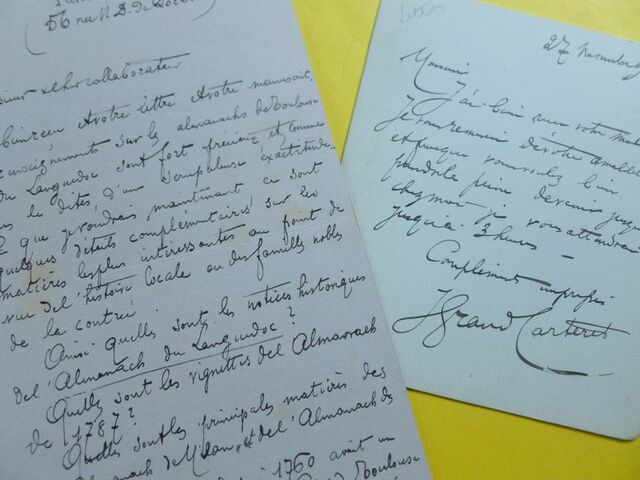 (56 rue N. D. de Lorette)
Monsieur et cher collaborateur
bien reçu et votre lettre et votre manuscrit.
renseignements sur les almanachs de Toulouse
du Languedoc sont fort précieux et comme
vous le dites, d'un scrupuleuse exactitude.
Ce que je voudrais maintenant ce sont
quelques détails complémentaires sur les
matières les plus intéressantes au point de
vue de l'histoire locale ou des familles nobles
de la contrée
Ainsi quelles sont les notices historiques
de l'Almanach du Languedoc?
Quelles sont les vignettes de l'Almanach
de 1787?
Quelles sont les principales matières des
Almanach de Milan, et de l'Almanach de
1760 avait un
de Toulouse
27 novembre
Monsieur
J'ai bien reçu votre
Je vous remercie de votre
et puisque vous voulez bien
prendre la peine de venir jusque
chez moi je vous attendrai
jusqu'à 3 heures -
Compliments empressés
J Grand Carteret